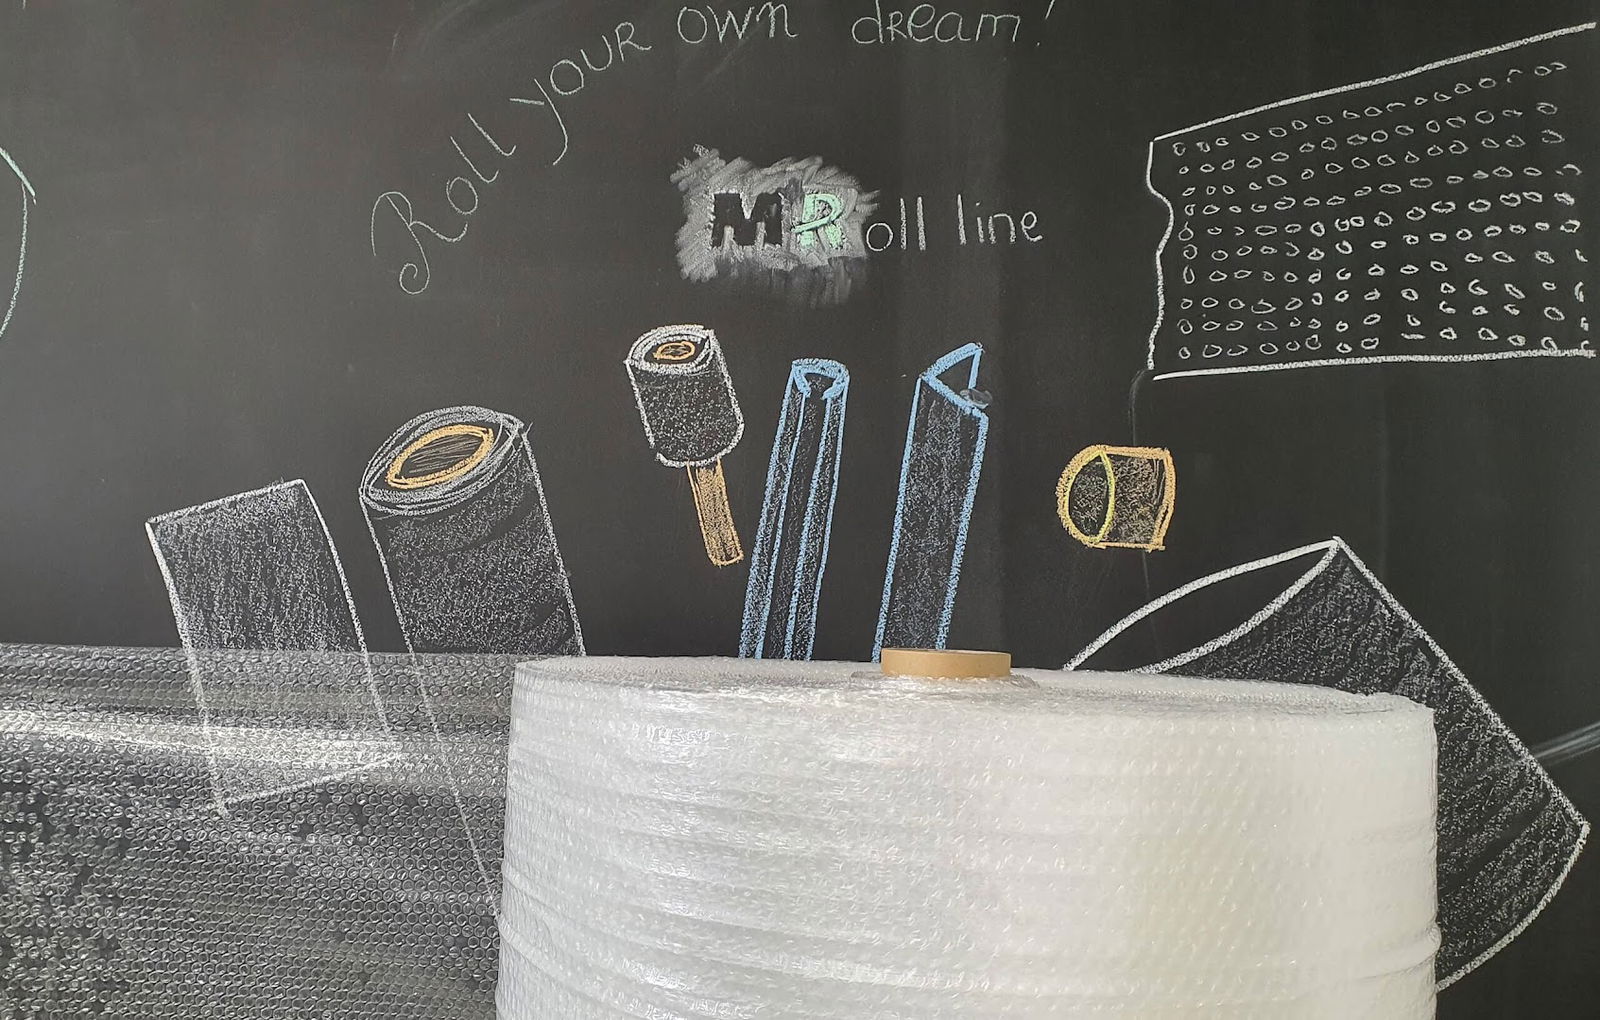 Roll your own dream!
MRoll line